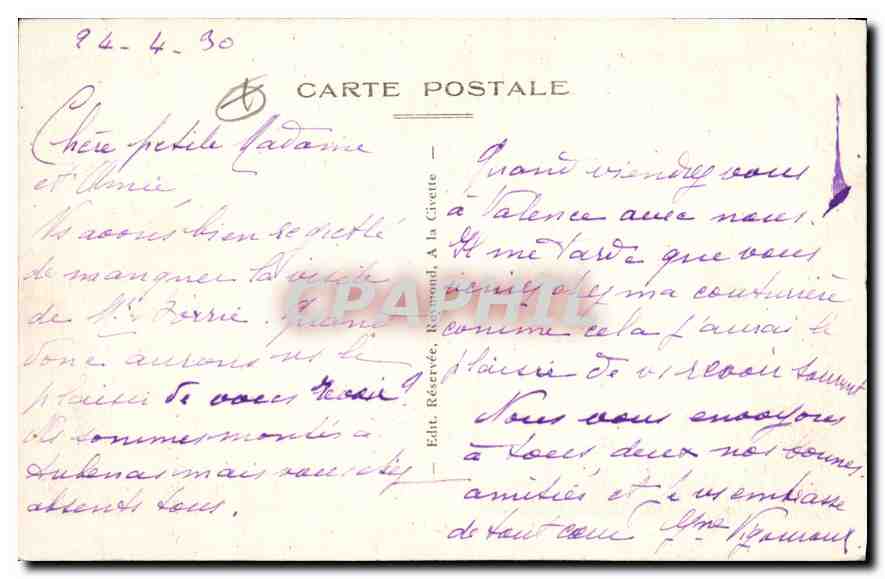 24-4-30
CARTE POSTALE
Chère petite Madame
et Amie
Ns avons bien regretté
de manquer la visite
de Mr Ferrié. Quand
donc aurons ns le
plaisir de vous revoir?
Ns sommes montés à
Aubenas mais vous étiez
absents tous.
Edit. Réservée, Reymond, A la Civette
Quand viendrez vous
à Valence avec nous.
Il me tarde que vous
veniez chez ma couturière
comme cela j'aurai le
plaisir de vs revoir souvent
Nous vous envoyons
à tous deux nos bonnes
amitiés et je vs embrasse
de tout coeur
CPAPHIL